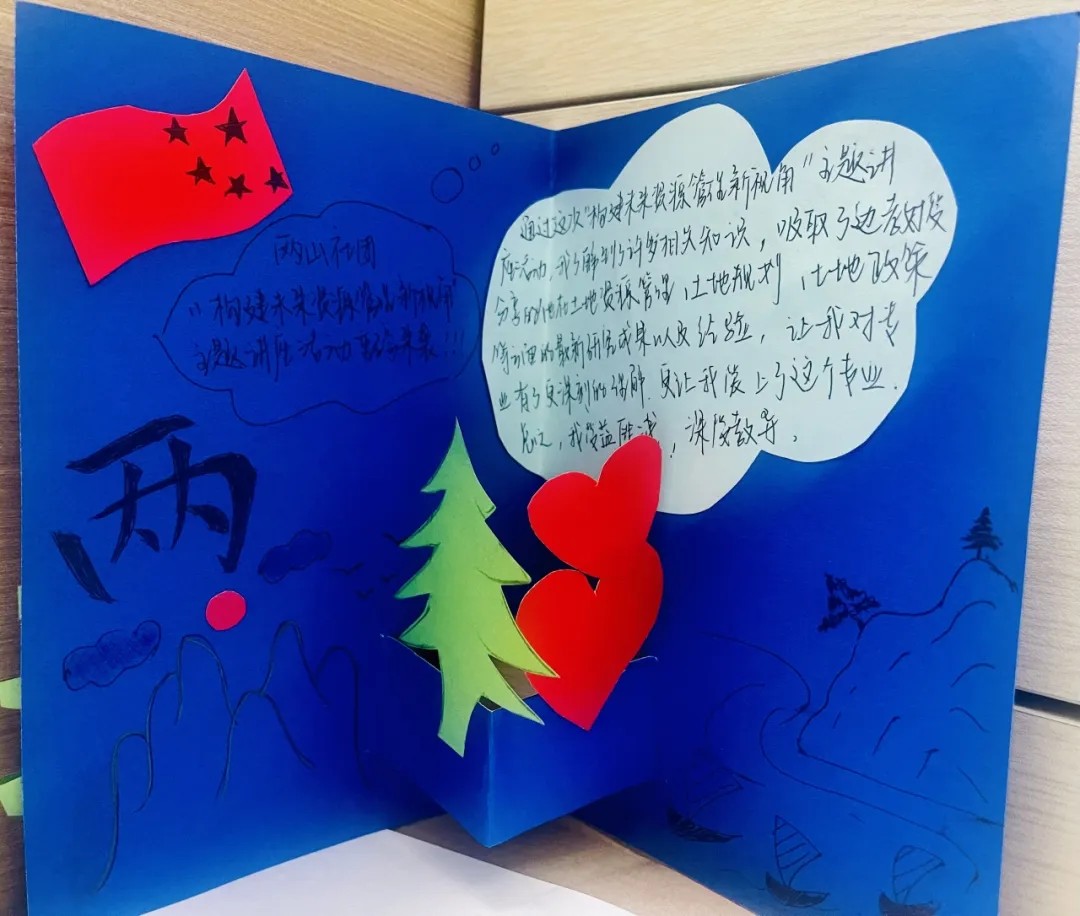 两山社团
"构建未来资源管理新视角"
主题讲座活动 !!!
两
通过这次"构建未来资源管理新视角"主题讲
座活动,我了解到了许多相关知识,吸取了边老师
分享的他在土地资源管理,土地规划,土地政策
等方面的最新研究成果以及经验,让我对专
业有了更深刻的理解.更让我爱上了这个专业.
总之,我受益匪浅,深受教导.